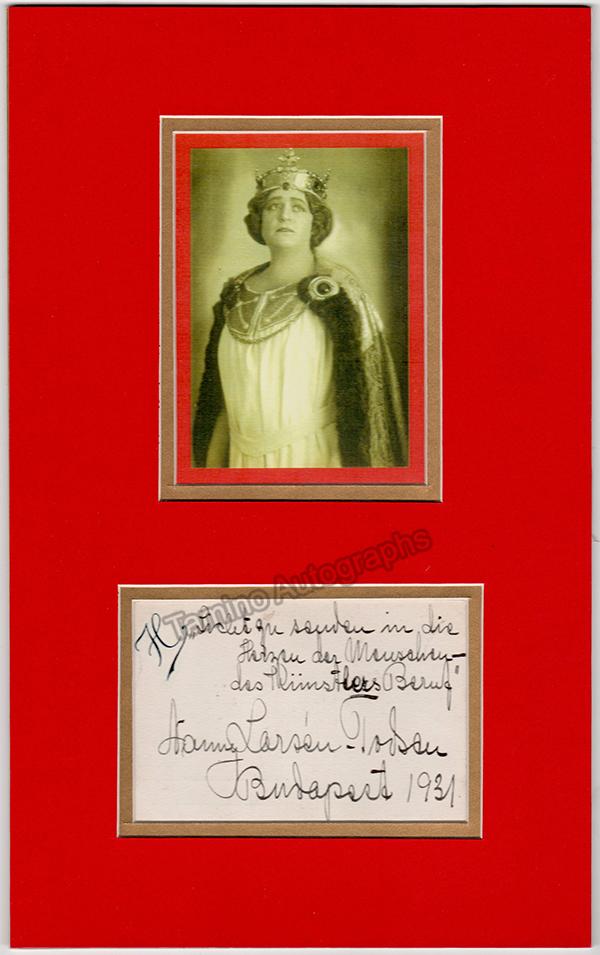 Tamino Autographs
„Licht zu senden in die
Herzen der Menschen –
des Künstlers Beruf"
Nanny Larsén-Todsen
Budapest 1931.